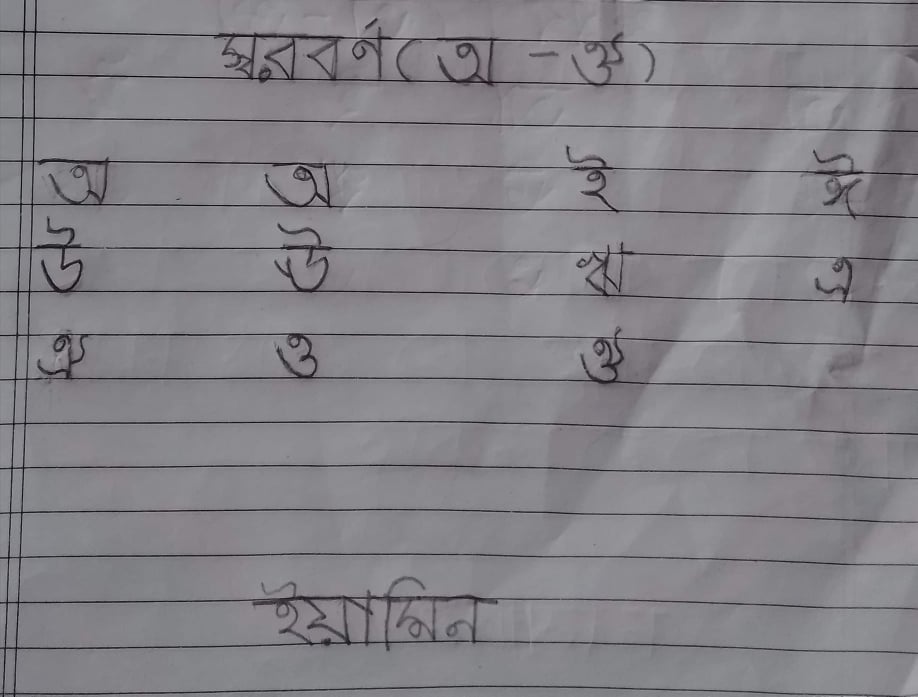 স্বরবর্ণ (অ - ঔ)
অ অ ই ঈ
উ ঊ ঋ এ
ঐ ও ঔ
ইয়ামিন